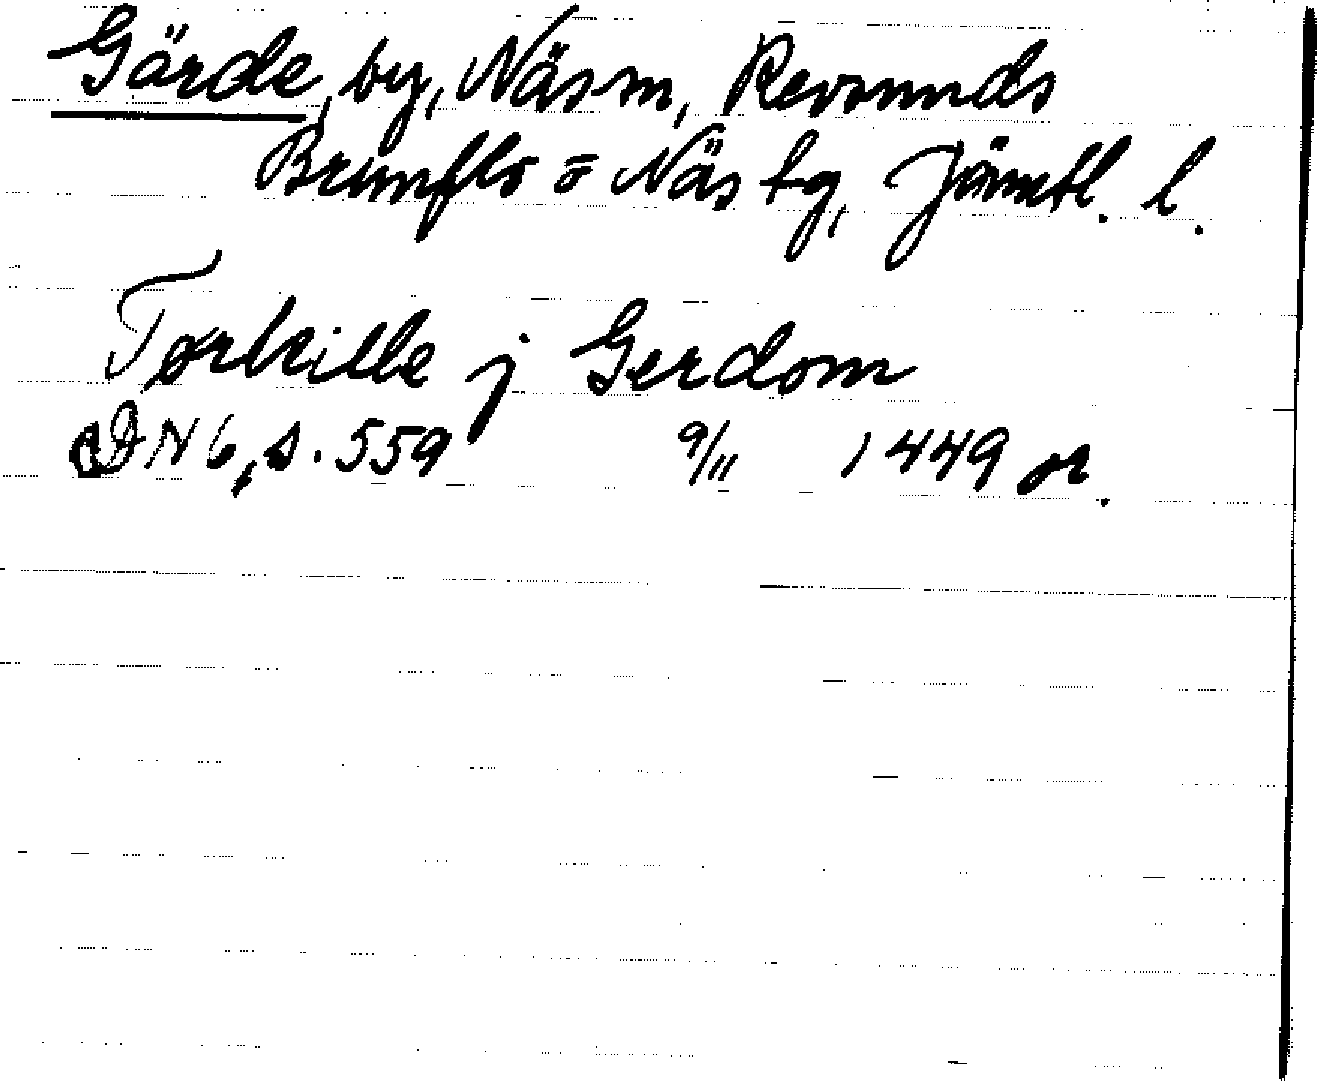 Gärde, by, Näs sn, Revsunds
Brunflo = Näs tg, Jämtl. l.
Torkille j Gerdom
DN 6, s. 559 9/11 1449 or.